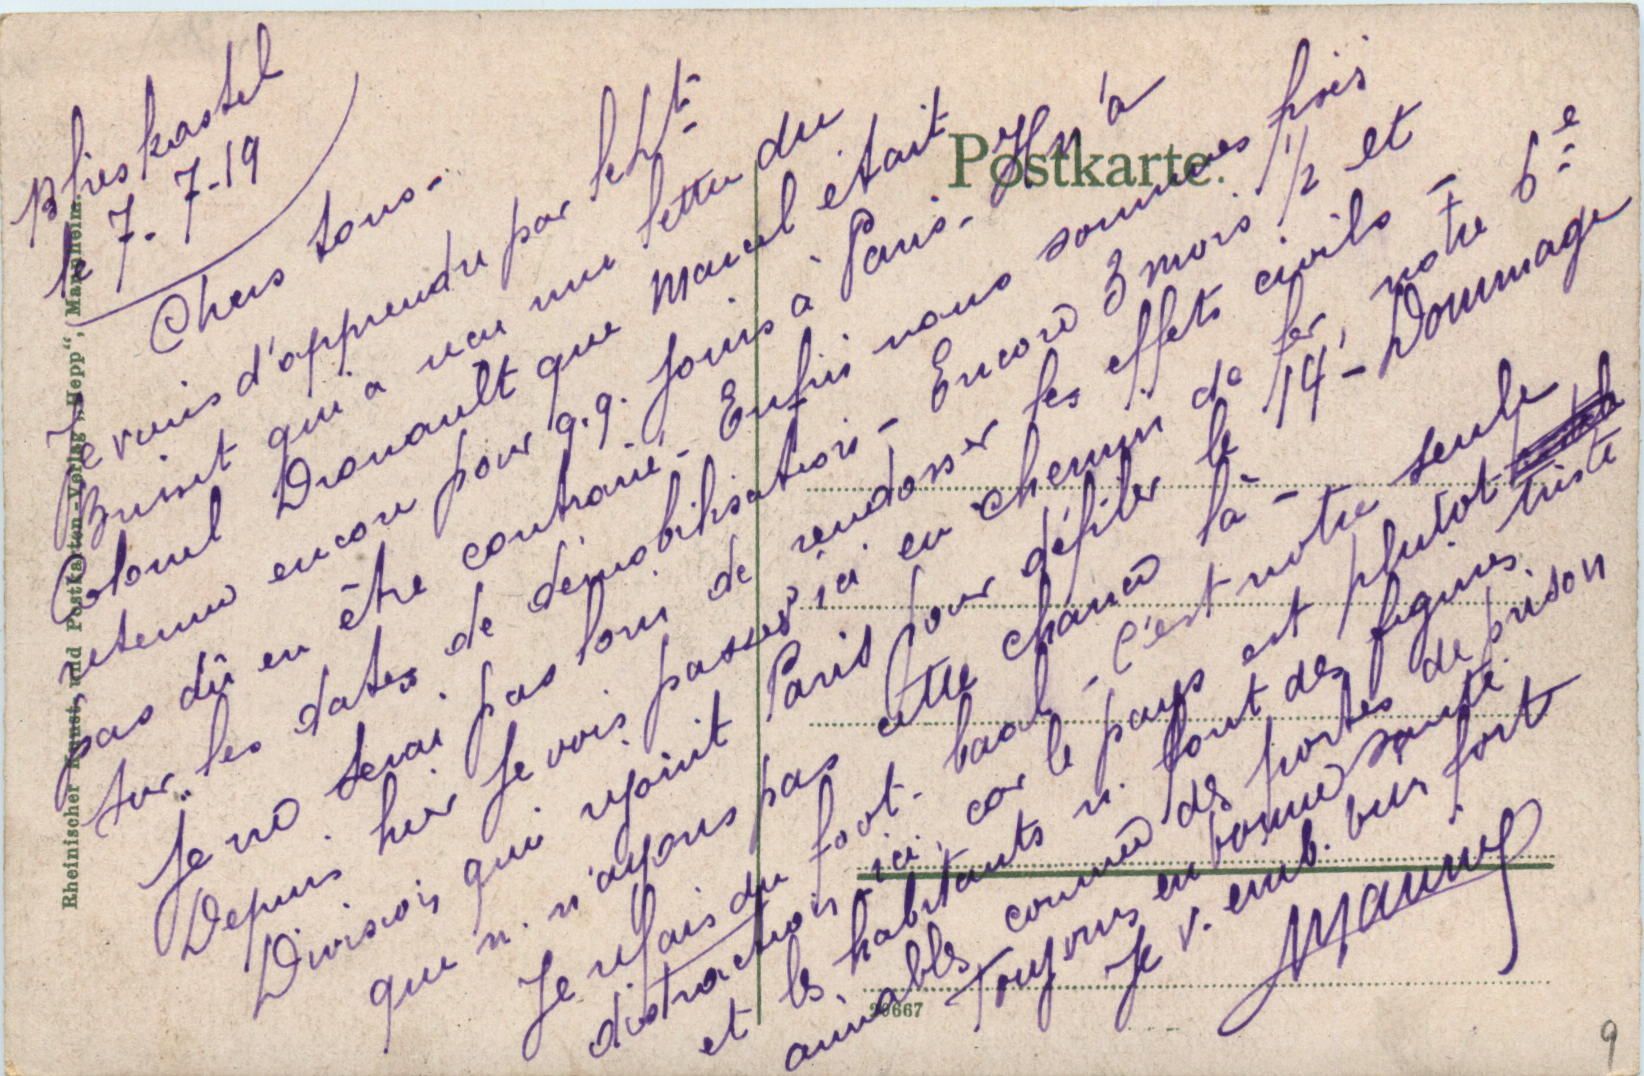 Postkarte.
Blieskastel
le 7-7-19
Chers tous-
Je viens d'apprendre par le Ltt
Brisset qui a reçu une lettre du
Colonel Drouault que Marcel était
retenu encore pour q.q. jours à Paris- Il n'a
pas dû en être contrarié- Enfin nous sommes fixés
sur les dates de démobilisation- Encore 3 mois 1/2 et
Je ne serai pas loin de rendosser les effets civils-
Depuis hier Je vois passer ici en chemin de fer, notre 6e
Division qui rejoint Paris pour défiler le 14- Dommage
que n. n'ayons pas cette chance là-
Je refais du foot-ball- C'est notre seule
distraction ici, car le pays est plutôt triste
et les habitants n. font des figures
aimables comme des portes de prison
Toujours en bonne santé.
Je v. emb. bien fort
Maurice
Rheinischer Kunst- und Postkarten-Verlag „Hepp“, Mannheim.
29667
9